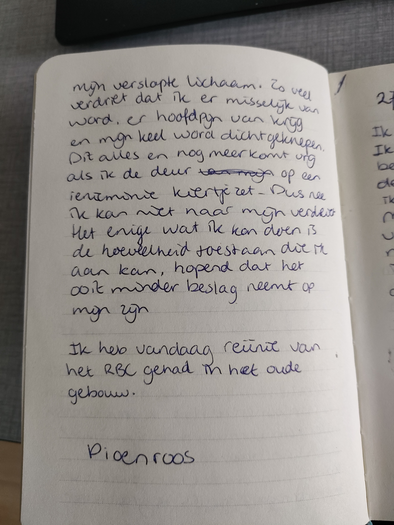 mijn verslapte lichaam. Zo veel
verdriet dat ik er misselijk van
word, er hoofdpijn van krijg
en mijn keel word dichtgeknepen.
Dit alles en nog meer komt vrij
als ik de deur op een
ieniminie kiertje zet - Dus nee
ik kan niet naar mijn verdriet
Het enige wat ik kan doen is
de hoeveelheid toestaan die ik
aan kan, hopend dat het
ooit minder beslag neemt op
mijn zijn
Ik heb vandaag reünie van
het RBC gehad in het oude
gebouw.
Pioenroos
27
Ik
Ik
be
de